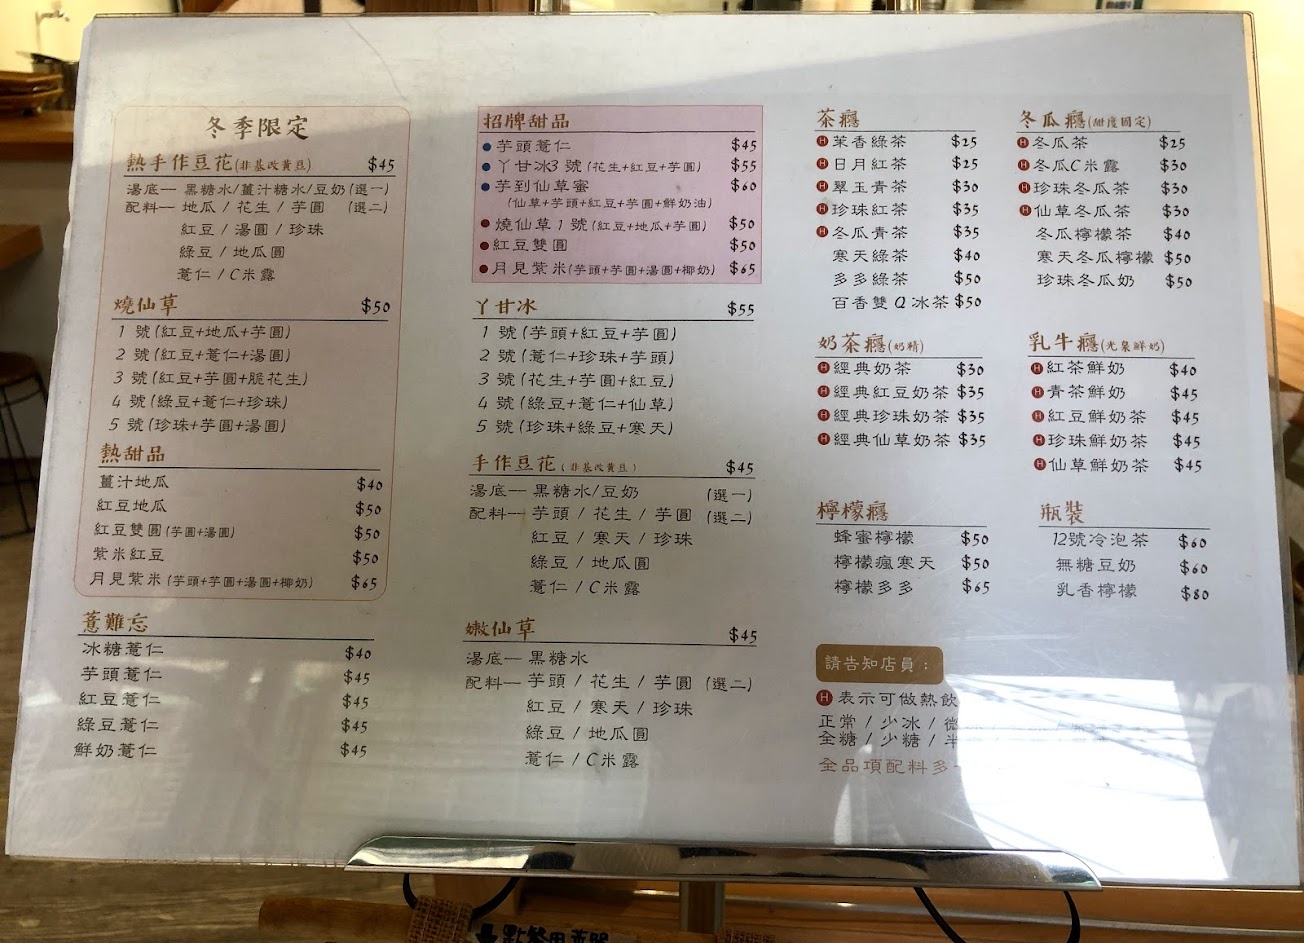 冬季限定
熱手作豆花(非基改黃豆) $45
湯底— 黑糖水/薑汁糖水/豆奶(選一)
配料— 地瓜 / 花生 / 芋圓 (選二)
紅豆 / 湯圓 / 珍珠
綠豆 / 地瓜圓
薏仁 / C米露
燒仙草 $50
1 號(紅豆+地瓜+芋圓)
2 號(紅豆+薏仁+湯圓)
3 號(紅豆+芋圓+脆花生)
4 號(綠豆+薏仁+珍珠)
5 號(珍珠+芋圓+湯圓)
熱甜品
薑汁地瓜 $40
紅豆地瓜 $50
紅豆雙圓(芋圓+湯圓) $50
紫米紅豆 $50
月見紫米(芋頭+芋圓+湯圓+椰奶) $65
薏難忘
冰糖薏仁 $40
芋頭薏仁 $45
紅豆薏仁 $45
綠豆薏仁 $45
鮮奶薏仁 $45
招牌甜品
芋頭薏仁 $45
丫甘冰3 號(花生+紅豆+芋圓) $55
芋到仙草蜜 $60
(仙草+芋頭+紅豆+芋圓+鮮奶油)
燒仙草 1 號(紅豆+地瓜+芋圓) $50
紅豆雙圓 $50
月見紫米(芋頭+芋圓+湯圓+椰奶) $65
丫甘冰 $55
1 號(芋頭+紅豆+芋圓)
2 號(薏仁+珍珠+芋頭)
3 號(花生+芋圓+紅豆)
4 號(綠豆+薏仁+仙草)
5 號(珍珠+綠豆+寒天)
手作豆花(非基改黃豆) $45
湯底— 黑糖水/豆奶 (選一)
配料— 芋頭 / 花生 / 芋圓 (選二)
紅豆 / 寒天 / 珍珠
綠豆 / 地瓜圓
薏仁 / C米露
嫩仙草 $45
湯底— 黑糖水
配料— 芋頭 / 花生 / 芋圓 (選二)
紅豆 / 寒天 / 珍珠
綠豆 / 地瓜圓
薏仁 / C米露
茶癮
H茉香綠茶 $25
H日月紅茶 $25
H翠玉青茶 $30
H珍珠紅茶 $35
H冬瓜青茶 $35
寒天綠茶 $40
多多綠茶 $50
百香雙 Q 冰茶 $50
奶茶癮(奶精)
H經典奶茶 $30
H經典紅豆奶茶 $35
H經典珍珠奶茶 $35
H經典仙草奶茶 $35
檸檬癮
蜂蜜檸檬 $50
檸檬瘋寒天 $50
檸檬多多 $65
冬瓜癮(甜度固定)
H冬瓜茶 $25
H冬瓜C米露 $30
H珍珠冬瓜茶 $30
H仙草冬瓜茶 $30
冬瓜檸檬茶 $40
寒天冬瓜檸檬 $50
珍珠冬瓜奶 $50
乳牛癮(光泉鮮奶)
H紅茶鮮奶 $40
H青茶鮮奶 $45
H紅豆鮮奶茶 $45
H珍珠鮮奶茶 $45
H仙草鮮奶茶 $45
瓶裝
12號冷泡茶 $60
無糖豆奶 $60
乳香檸檬 $80
請告知店員：
H 表示可做熱飲
正常 / 少冰 / 微
全糖 / 少糖 / 半
全品項配料多